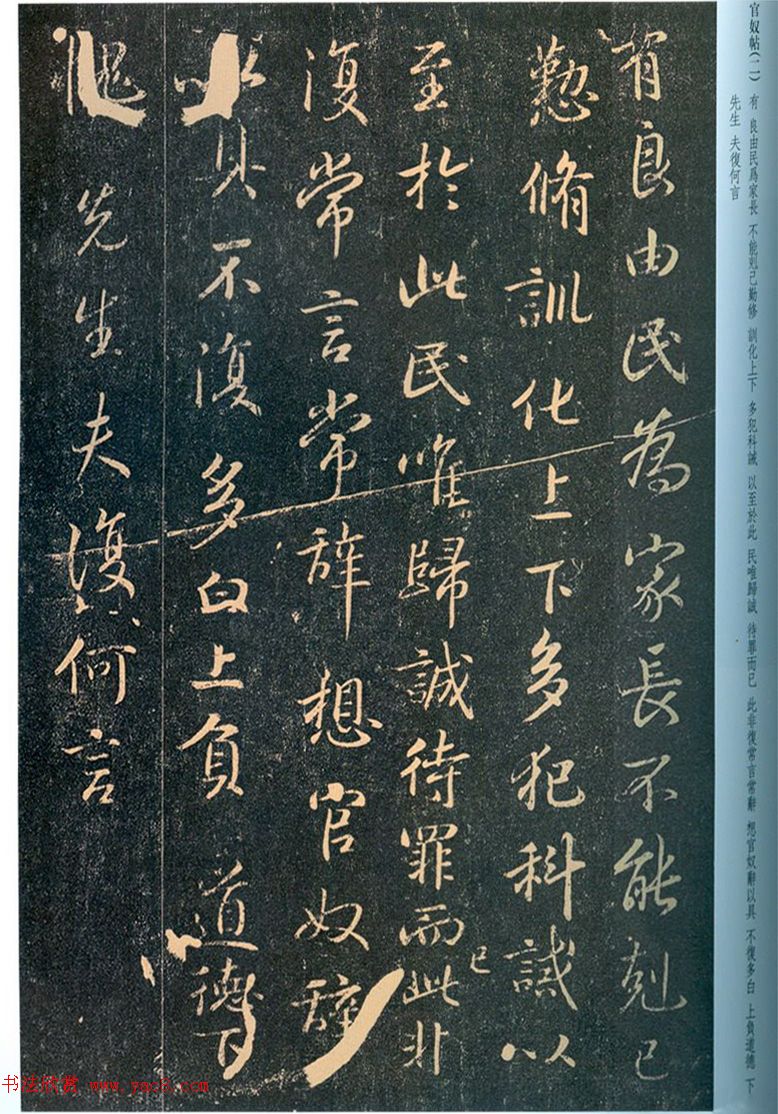 官奴帖(二) 有 良由民爲家長 不能剋己勤修 訓化上下 多犯科誡 以至於此 民唯歸誠 待罪而已 此非復常言常辭 想官奴辭以具 不復多白 上負道德 下
先生 夫復何言
有良由民為家長不能剋己
懃脩訓化上下多犯科誡以
至於此民唯歸誠待罪而已此非
復常言常辞想官奴辭
以具不復多白上負道德下
愧先生夫復何言
书法欣赏 www.yac8.com